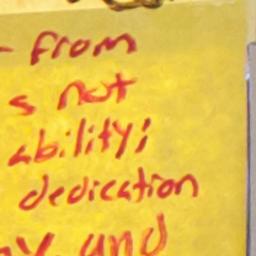 - from
s not
ability;
dedication
ny and